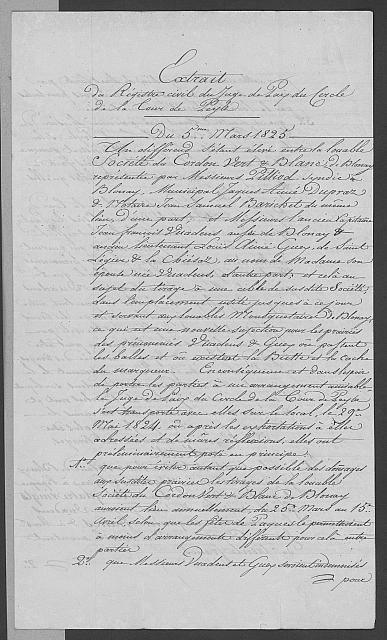 Extrait
du Régistre civil du Juge de Paix du Cercle
de la Tour de Peylz
Du 5me Mars 1825
Un différend s'étant élevé entre la louable
Société du Cordon Vert & Blanc de Blonay
représentée par Messieurs Pilliod Syndic à
Blonay, Municipal Jaques Aimé Dupraz
& Notaire Jean Samuel Bonjour de même
lieu, d'une part, et Messieurs l'ancien Capitaine
Jean François Duadens aussi de Blonay &
ancien lieutenant Louis Aimé Guex, de Saint
Légier & la Chiésaz, au nom de Madame son
épouse née Duadens, d'autre part, et cela au
sujet du tirage à une cible de susdite Société;
dans l'emplacement usité jusques à ce jour
et servant aux louables Mousquetaires de Blonay,
ce qui est une nouvelle sujection pour les prairies
des prénommés Duadens & Guex où passent
les balles et où existent la Butte et la cache
du marqueur. En conséquence et dans l'espoir
de porter les parties à un arrangement amiable
le Juge de Paix du Cercle de la Tour de Peylz
s'est transporté avec elles sur le local, le 29e
Mai 1824 où après les exhortations à elles
adressées et de mûres réflexions, elles ont
préliminairement posé en principe:
1o. que pour éviter autant que possible des domages
aux susdites prairies les tirages de la louable
Société du Cordon Vert & Blanc de Blonay
auront lieu annuellement, du 25e Mars au 15e
Avril, selon que les fêtes de Pâques le permettront
à moins d'arrangement différent pour cela entre
parties
2o. que Messieurs Duadens et Guex seroient indemnisés
= pour